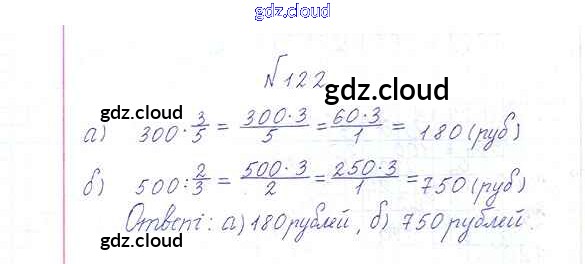 gdz.cloud
№122
gdz.cloud
gdz.cloud
а) 300 · 3/5 = 300·3/5 = 60·3/1 = 180 (руб)
б) 500 : 2/3 = 500·3/2 = 250·3/1 = 750 (руб)
Ответ: а) 180 рублей, б) 750 рублей.
gdz.cloud
gdz.cloud